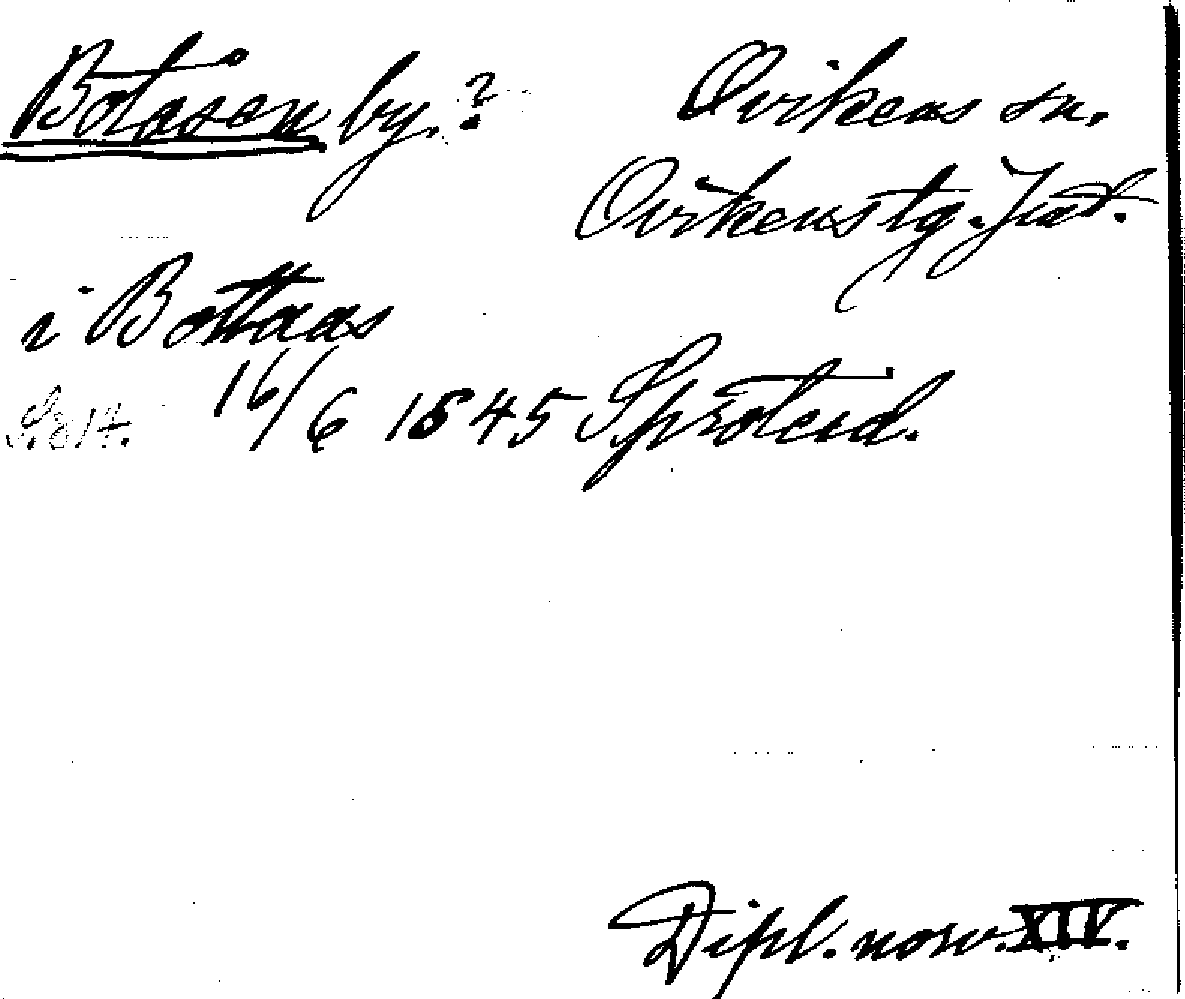 Botåsen by.? Ovikens sn.
Ovikens tg. Jmt.
i Bottaas
S. 814. 16/6 1545 Sproteid.
Dipl. norv. XIV.